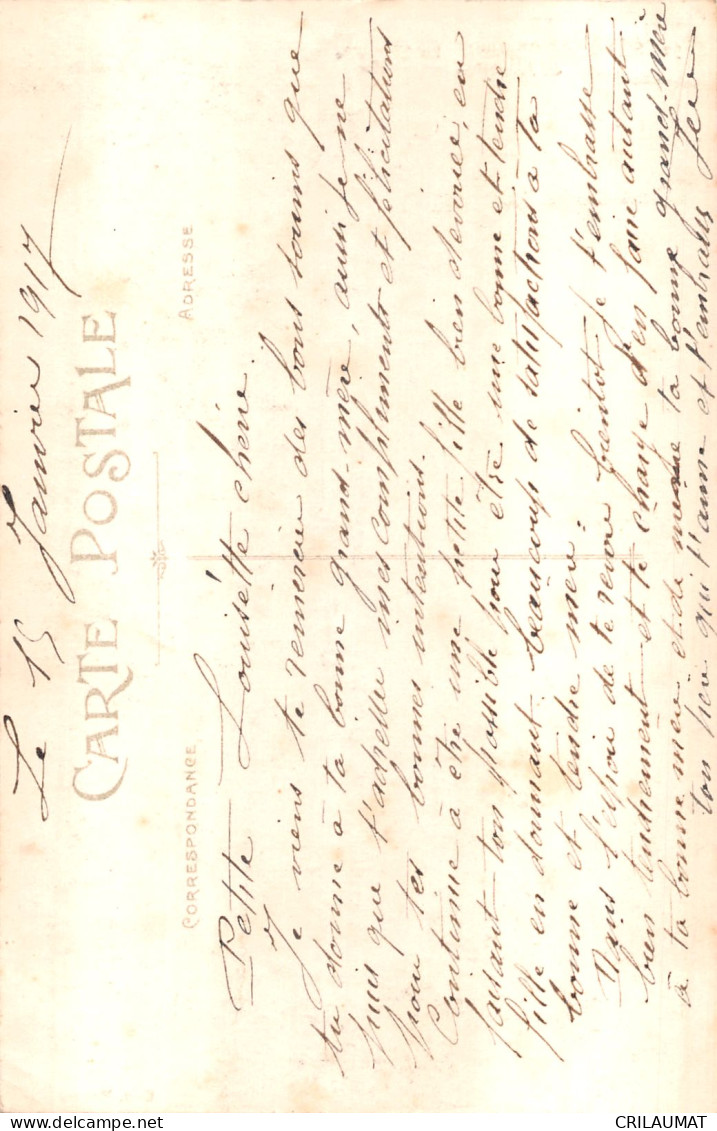 Le 15 Janvier 1917
CARTE POSTALE
CORRESPONDANCE
ADRESSE
Petite Louisette chérie.
Je viens te remercier des bons soins que
tu donne à ta bonne grand-mère, aussi je ne
puis que t'adresser mes compliments et félicitations
pour tes bonnes intentions.
Continue à être une petite fille bien dévouée, en
faisant ton possible pour être une bonne et tendre
fille en donnant beaucoup de satisfactions à ta
bonne et tendre mère.
Dans l'espoir de te revoir bientôt je t'embrasse
bien tendrement et te charge d'en faire autant
à ta bonne mère et de même ta bonne grand-mère
ton père qui t'aime et t'embrasse
CRILAUMAT